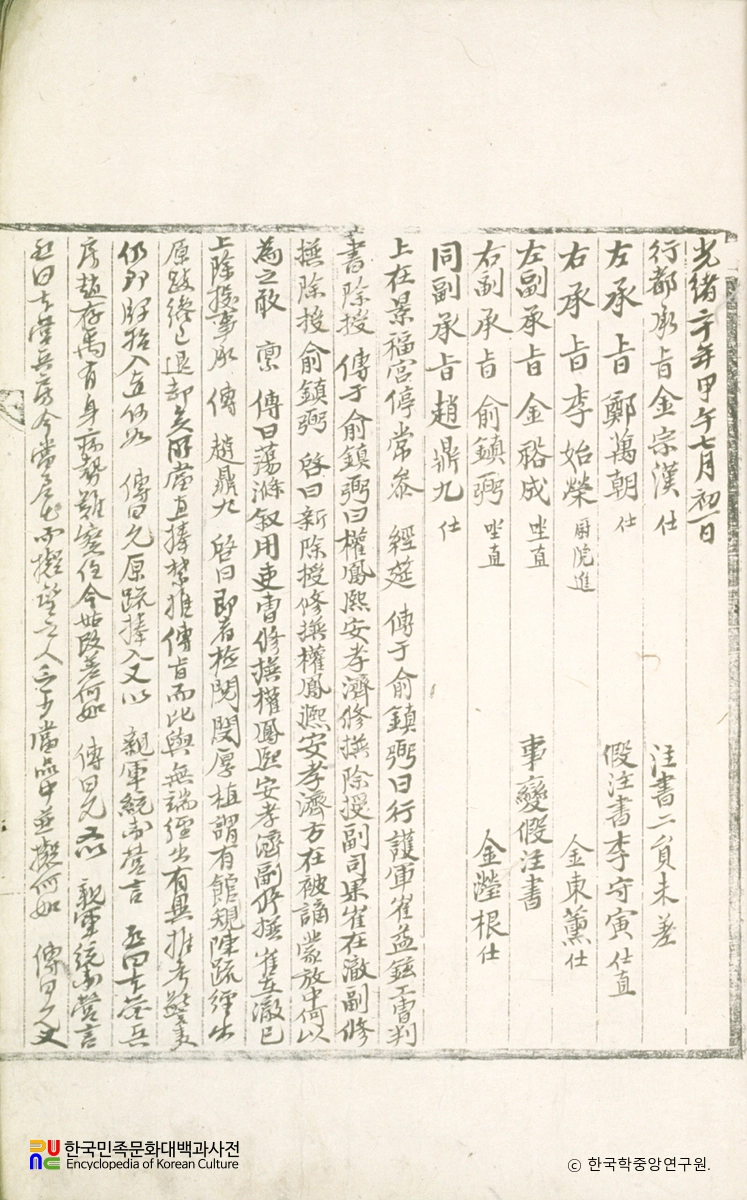 光緒二十年甲午七月初一日
行都承旨金宗漢 仕 注書二員未差
左承旨鄭萬朝 仕 假注書李守寅 仕直
右承旨李始榮 厨院進 金東薰 仕
左副承旨金裕成 坐直 事變假注書
右副承旨俞鎮弼 坐直 金瀅根 仕
同副承旨趙鼎九 仕
上在景福宮停常參 經筵 傳于俞鎮弼曰行護軍崔益鉉工曹判
書除授 傳于俞鎮弼曰權鳳熙安孝濟修撰除授副司果崔在澈副修
撰除授 俞鎮弼 啓曰新除授修撰權鳳熙安孝濟方在被謫蒙放中何以
為之敢 稟 傳曰蕩滌叙用吏曹修撰權鳳熙安孝濟副修撰崔在澈已
上除授事承 傳 趙鼎九 啓曰即者檢閱閔厚植謂有館規陳疏經出
原疏捧已退却矣所當直捧禁推傳旨而此與無端經出有異推考警責
仍即牌招入直何如 傳曰允原疏捧入又以 親軍統衛營言
房趙存禹有身病勢難察任今姑改差何如 傳曰允又以 親軍統衛營言
傳曰允又
한국민족문화대백과사전
Encyclopedia of Korean Culture
© 한국학중앙연구원.